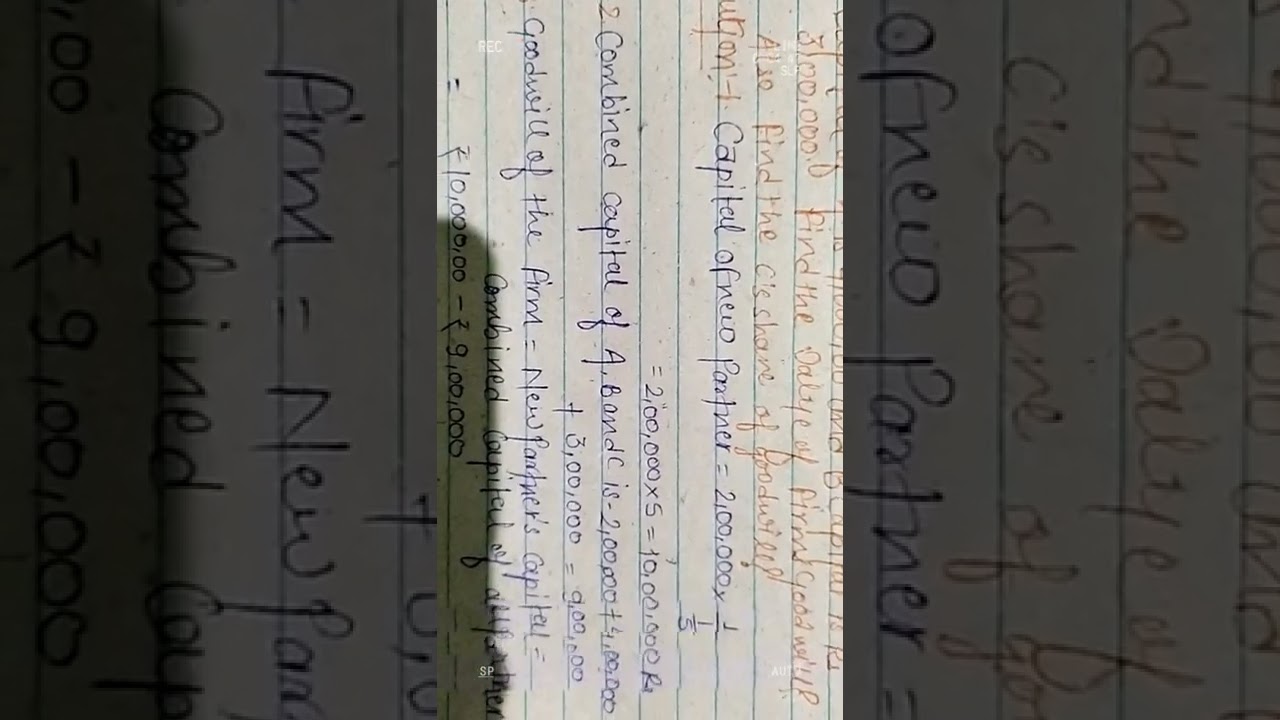 3,00,000. Find the Value of firm's Goodwill
Also find the C's share of Goodwill
ution:-1. Capital of new Partner = 2,00,000 × 1/1/5
= 2,00,000 × 5 = 10,00,000 Rs
2. Combined capital of A, B and C is - 2,00,000 + 4,00,000
+ 3,00,000 = 9,00,000
Goodwill of the firm = New Partner's capital =
Combined capital of all
= ₹ 10,000,00 - ₹ 9,00,000
REC
SP
AUT